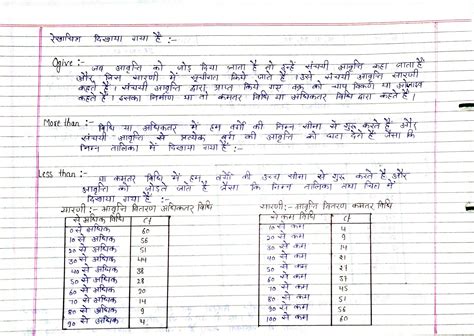 रेखाचित्र दिखाया गया है :-
Ogive :- जब आवृत्ति को जोड़ दिया जाता है तो इन्हें संचयी आवृत्ति कहा जाता है
और जिस सारणी में सूचीगत किये जाते है। उसे संचयी आवृत्ति सारणी
कहते हैं। संचयी आवृत्ति द्वारा प्राप्त किये गए वक्र को चाप विकर्ण या ओजाइव
कहते हैं। इसका निर्माण या तो कमतर विधि या अधिकतर विधि द्वारा कहते है।
More than :- विधि या अधिकतर में हम वर्गो की निम्न सीमा से शुरू करते हैं और
संचयी आवृत्ति से प्रत्येक वर्ग की आवृत्ति को घटा देते हैं जैसा कि
निम्न तालिका में दिखाया गया है :-
Less than :- या कमतर विधि में हम वर्गो की उच्च सीमा से शुरू करते हैं और
आवृत्ति को जोड़ते जाते है जैसा कि निम्न तालिका तथा चित्र में
दिखाया गया है :-
सारणी :- आवृत्ति वितरण अधिकतर विधि
से अधिक विधि cf
0 से अधिक 60
10 से अधिक 56
20 से अधिक 51
30 से अधिक 44
40 से अधिक 38
50 से अधिक 28
60 से अधिक 20
70 से अधिक 14
80 से अधिक 9
90 से अधिक 4
सारणी :- आवृत्ति वितरण कमतर विधि
से कम विधि cf
10 से कम 4
20 से कम 9
30 से कम
40 से कम
50 से कम
60 से कम
70 से कम
80 से कम
90 से कम
से कम